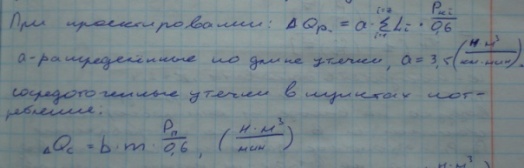 При проектировании: ΔQр. = a · Σ Li · Pкi / 0,6
i=n
i=1
a - распределённые по длине утечки, a = 3,5 (н·м³ / км·мин),
сосредоточенные утечки в пунктах пот-
ребления:
ΔQc = b · m · Pп / 0,6, (н·м³ / мин)